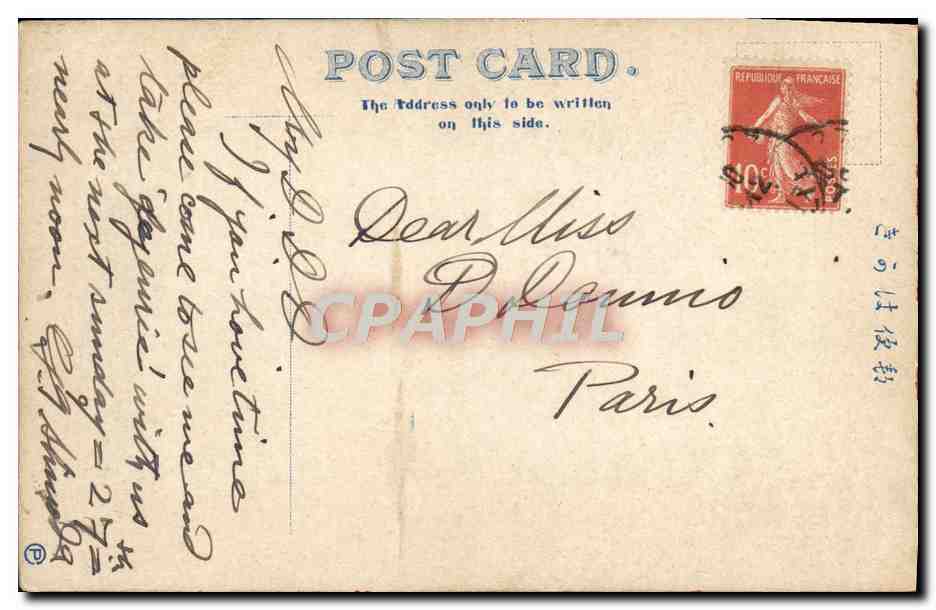 POST CARD.
The Address only to be written
on this side.
REPUBLIQUE FRANÇAISE
10c
POSTES
きかは便郵
Dear Miss
D. Daumo
Paris.
If you have time
please come to see me and
take "dejeurie" with us
at the next sunday = 27th =
neurly noon.
P
CPAPHIL